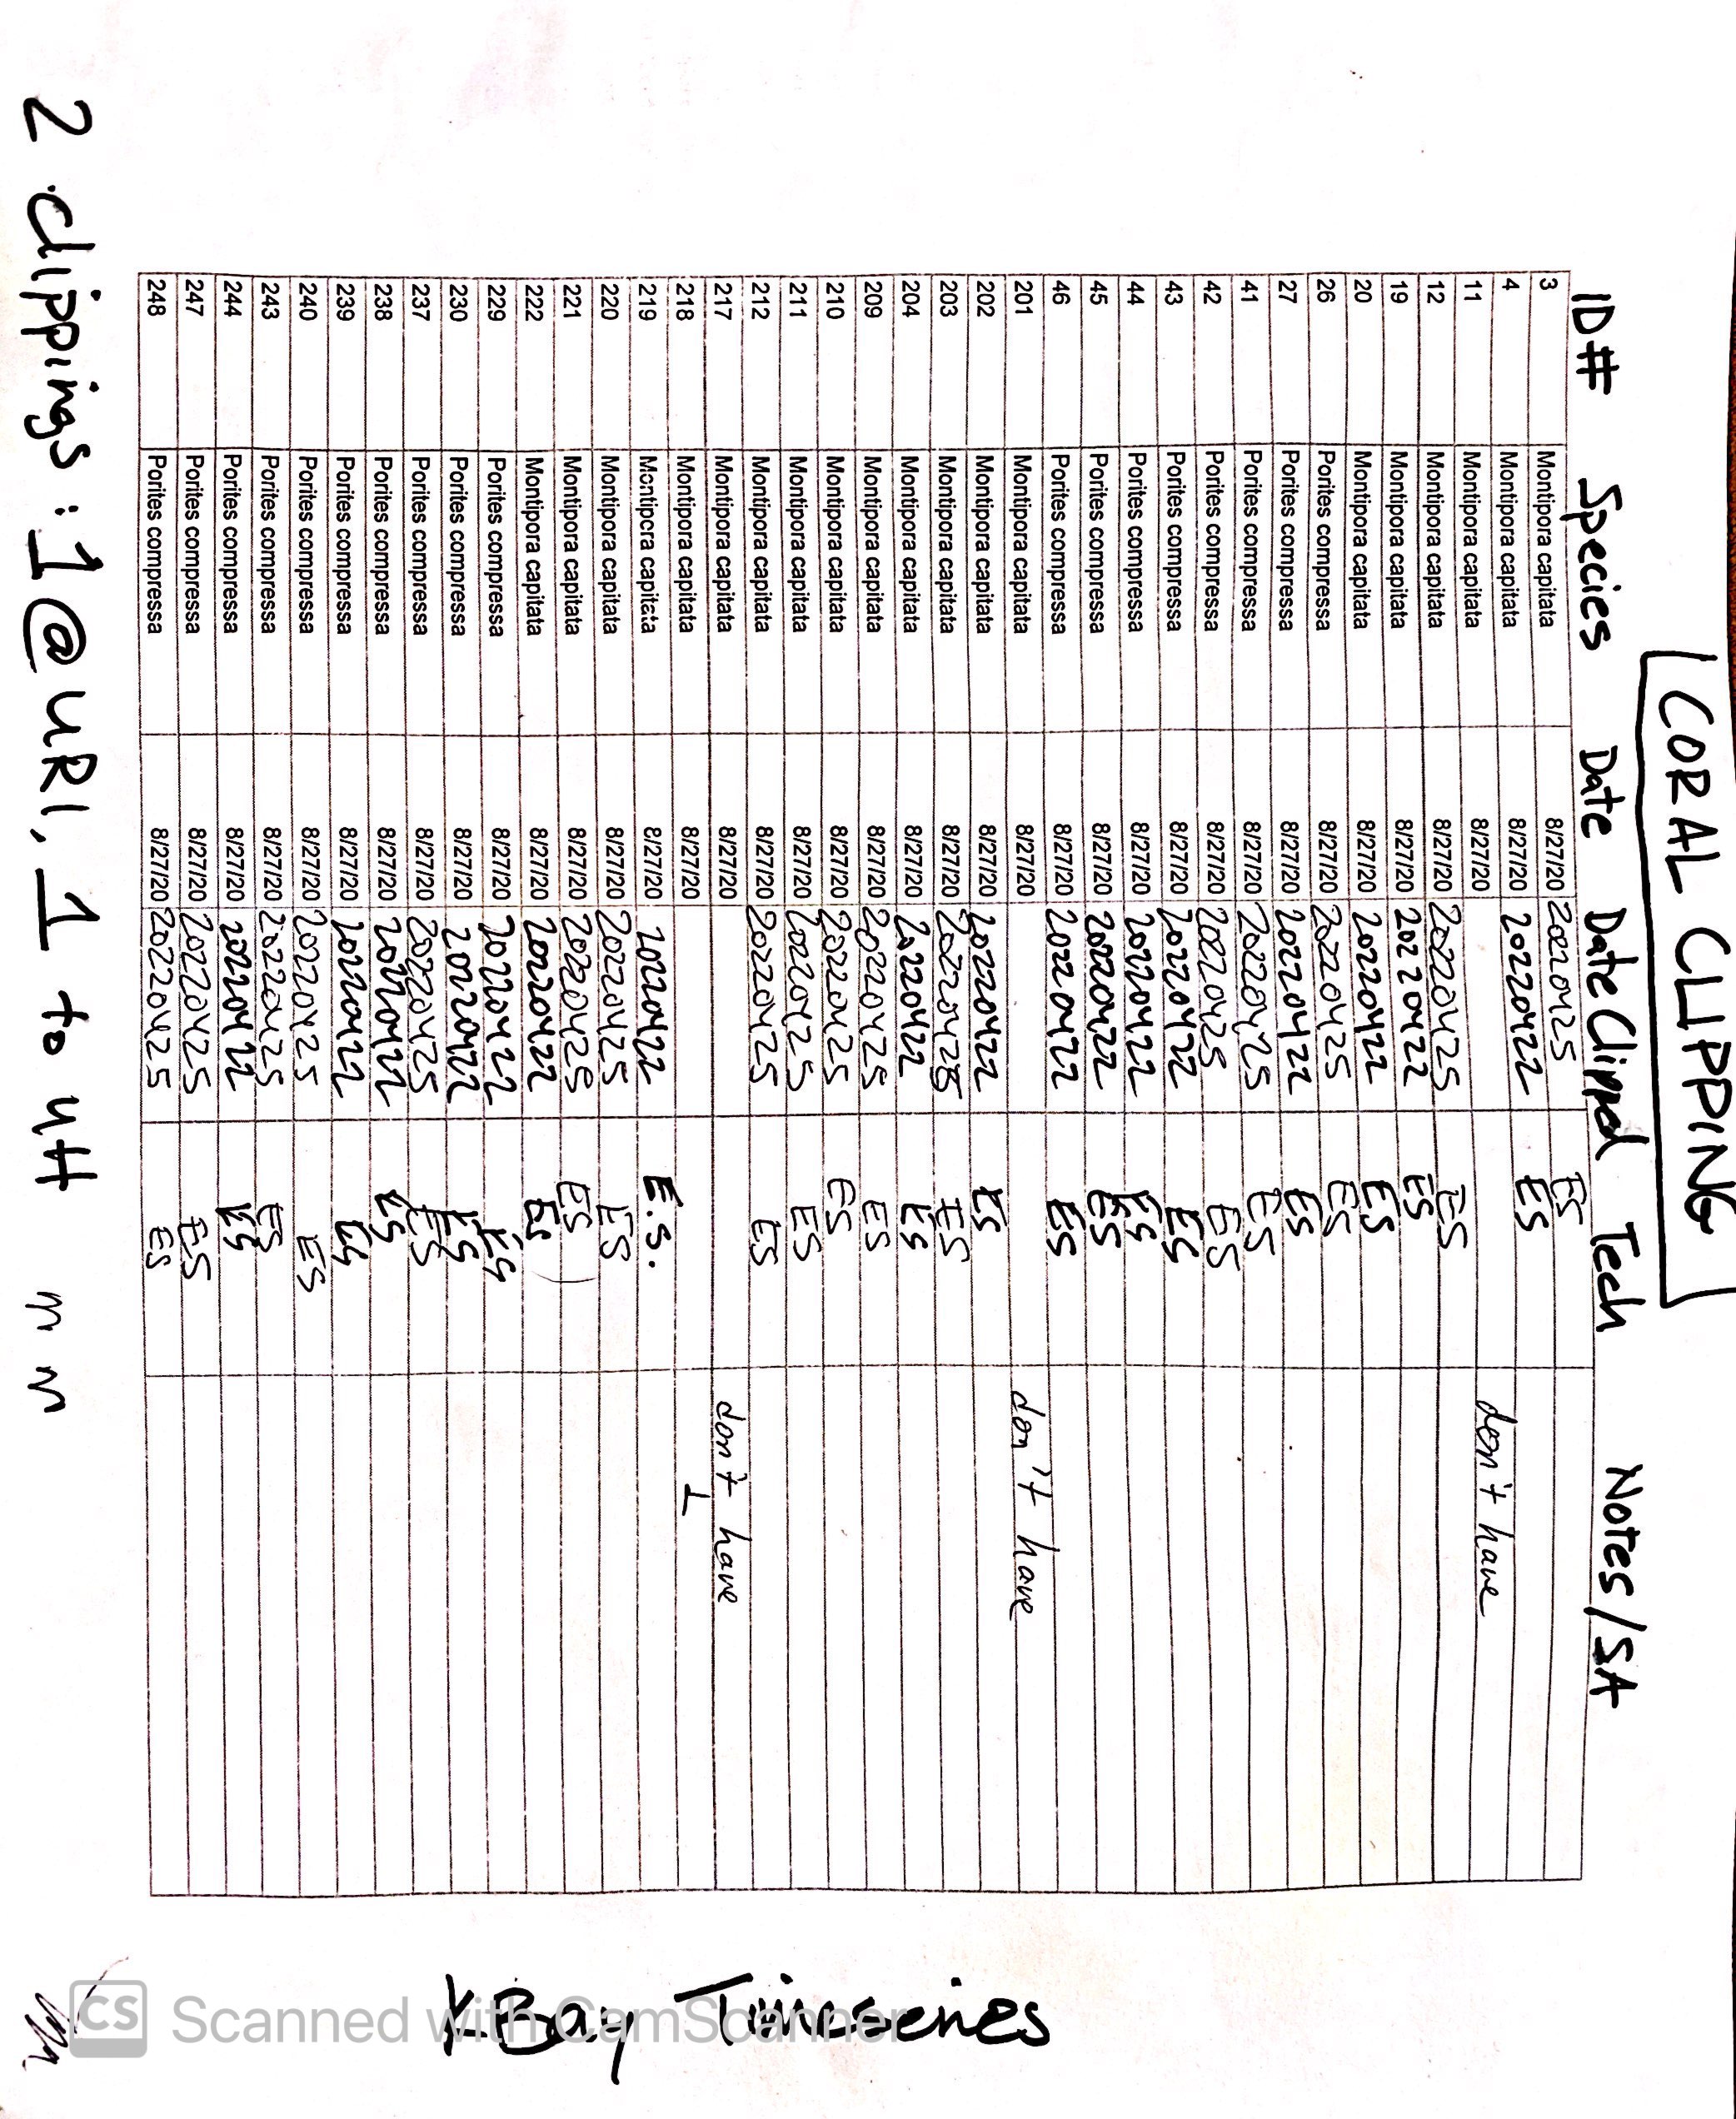 CORAL CLIPPING
ID# Species Date Date Clipped Tech Notes/SA
3 Montipora capitata 8/27/20 20220425 ES
4 Montipora capitata 8/27/20 20220422 ES
11 Montipora capitata 8/27/20 don't have
12 Montipora capitata 8/27/20 20220425 ES
19 Montipora capitata 8/27/20 20220422 ES
20 Montipora capitata 8/27/20 20220422 ES
26 Porites compressa 8/27/20 20220425 ES
27 Porites compressa 8/27/20 20220422 ES
41 Porites compressa 8/27/20 20220425 ES
42 Porites compressa 8/27/20 20220425 ES
43 Porites compressa 8/27/20 20220422 ES
44 Porites compressa 8/27/20 20220422 ES
45 Porites compressa 8/27/20 20220422 ES
46 Porites compressa 8/27/20 20220422 ES
201 Montipora capitata 8/27/20 don't have
202 Montipora capitata 8/27/20 20220422 ES
203 Montipora capitata 8/27/20 20220425 ES
204 Montipora capitata 8/27/20 20220422 ES
209 Montipora capitata 8/27/20 20220425 ES
210 Montipora capitata 8/27/20 20220425 ES
211 Montipora capitata 8/27/20 20220425 ES
212 Montipora capitata 8/27/20 20220425 ES
217 Montipora capitata 8/27/20 don't have
218 Montipora capitata 8/27/20
219 Montipora capitata 8/27/20 20220422 E.S.
220 Montipora capitata 8/27/20 20220425 ES
221 Montipora capitata 8/27/20 20220425 ES
222 Montipora capitata 8/27/20 20220422 ES
229 Porites compressa 8/27/20 20220422 ES
230 Porites compressa 8/27/20 20220422 ES
237 Porites compressa 8/27/20 20220425 ES
238 Porites compressa 8/27/20 20220422 ES
239 Porites compressa 8/27/20 20220422 ES
240 Porites compressa 8/27/20 20220425 ES
243 Porites compressa 8/27/20 20220425 ES
244 Porites compressa 8/27/20 20220422 ES
247 Porites compressa 8/27/20 20220425 ES
248 Porites compressa 8/27/20 20220425 ES
2 clippings: 1 @ URI, 1 to UH
KBay Timeseries
CS Scanned with CamScanner